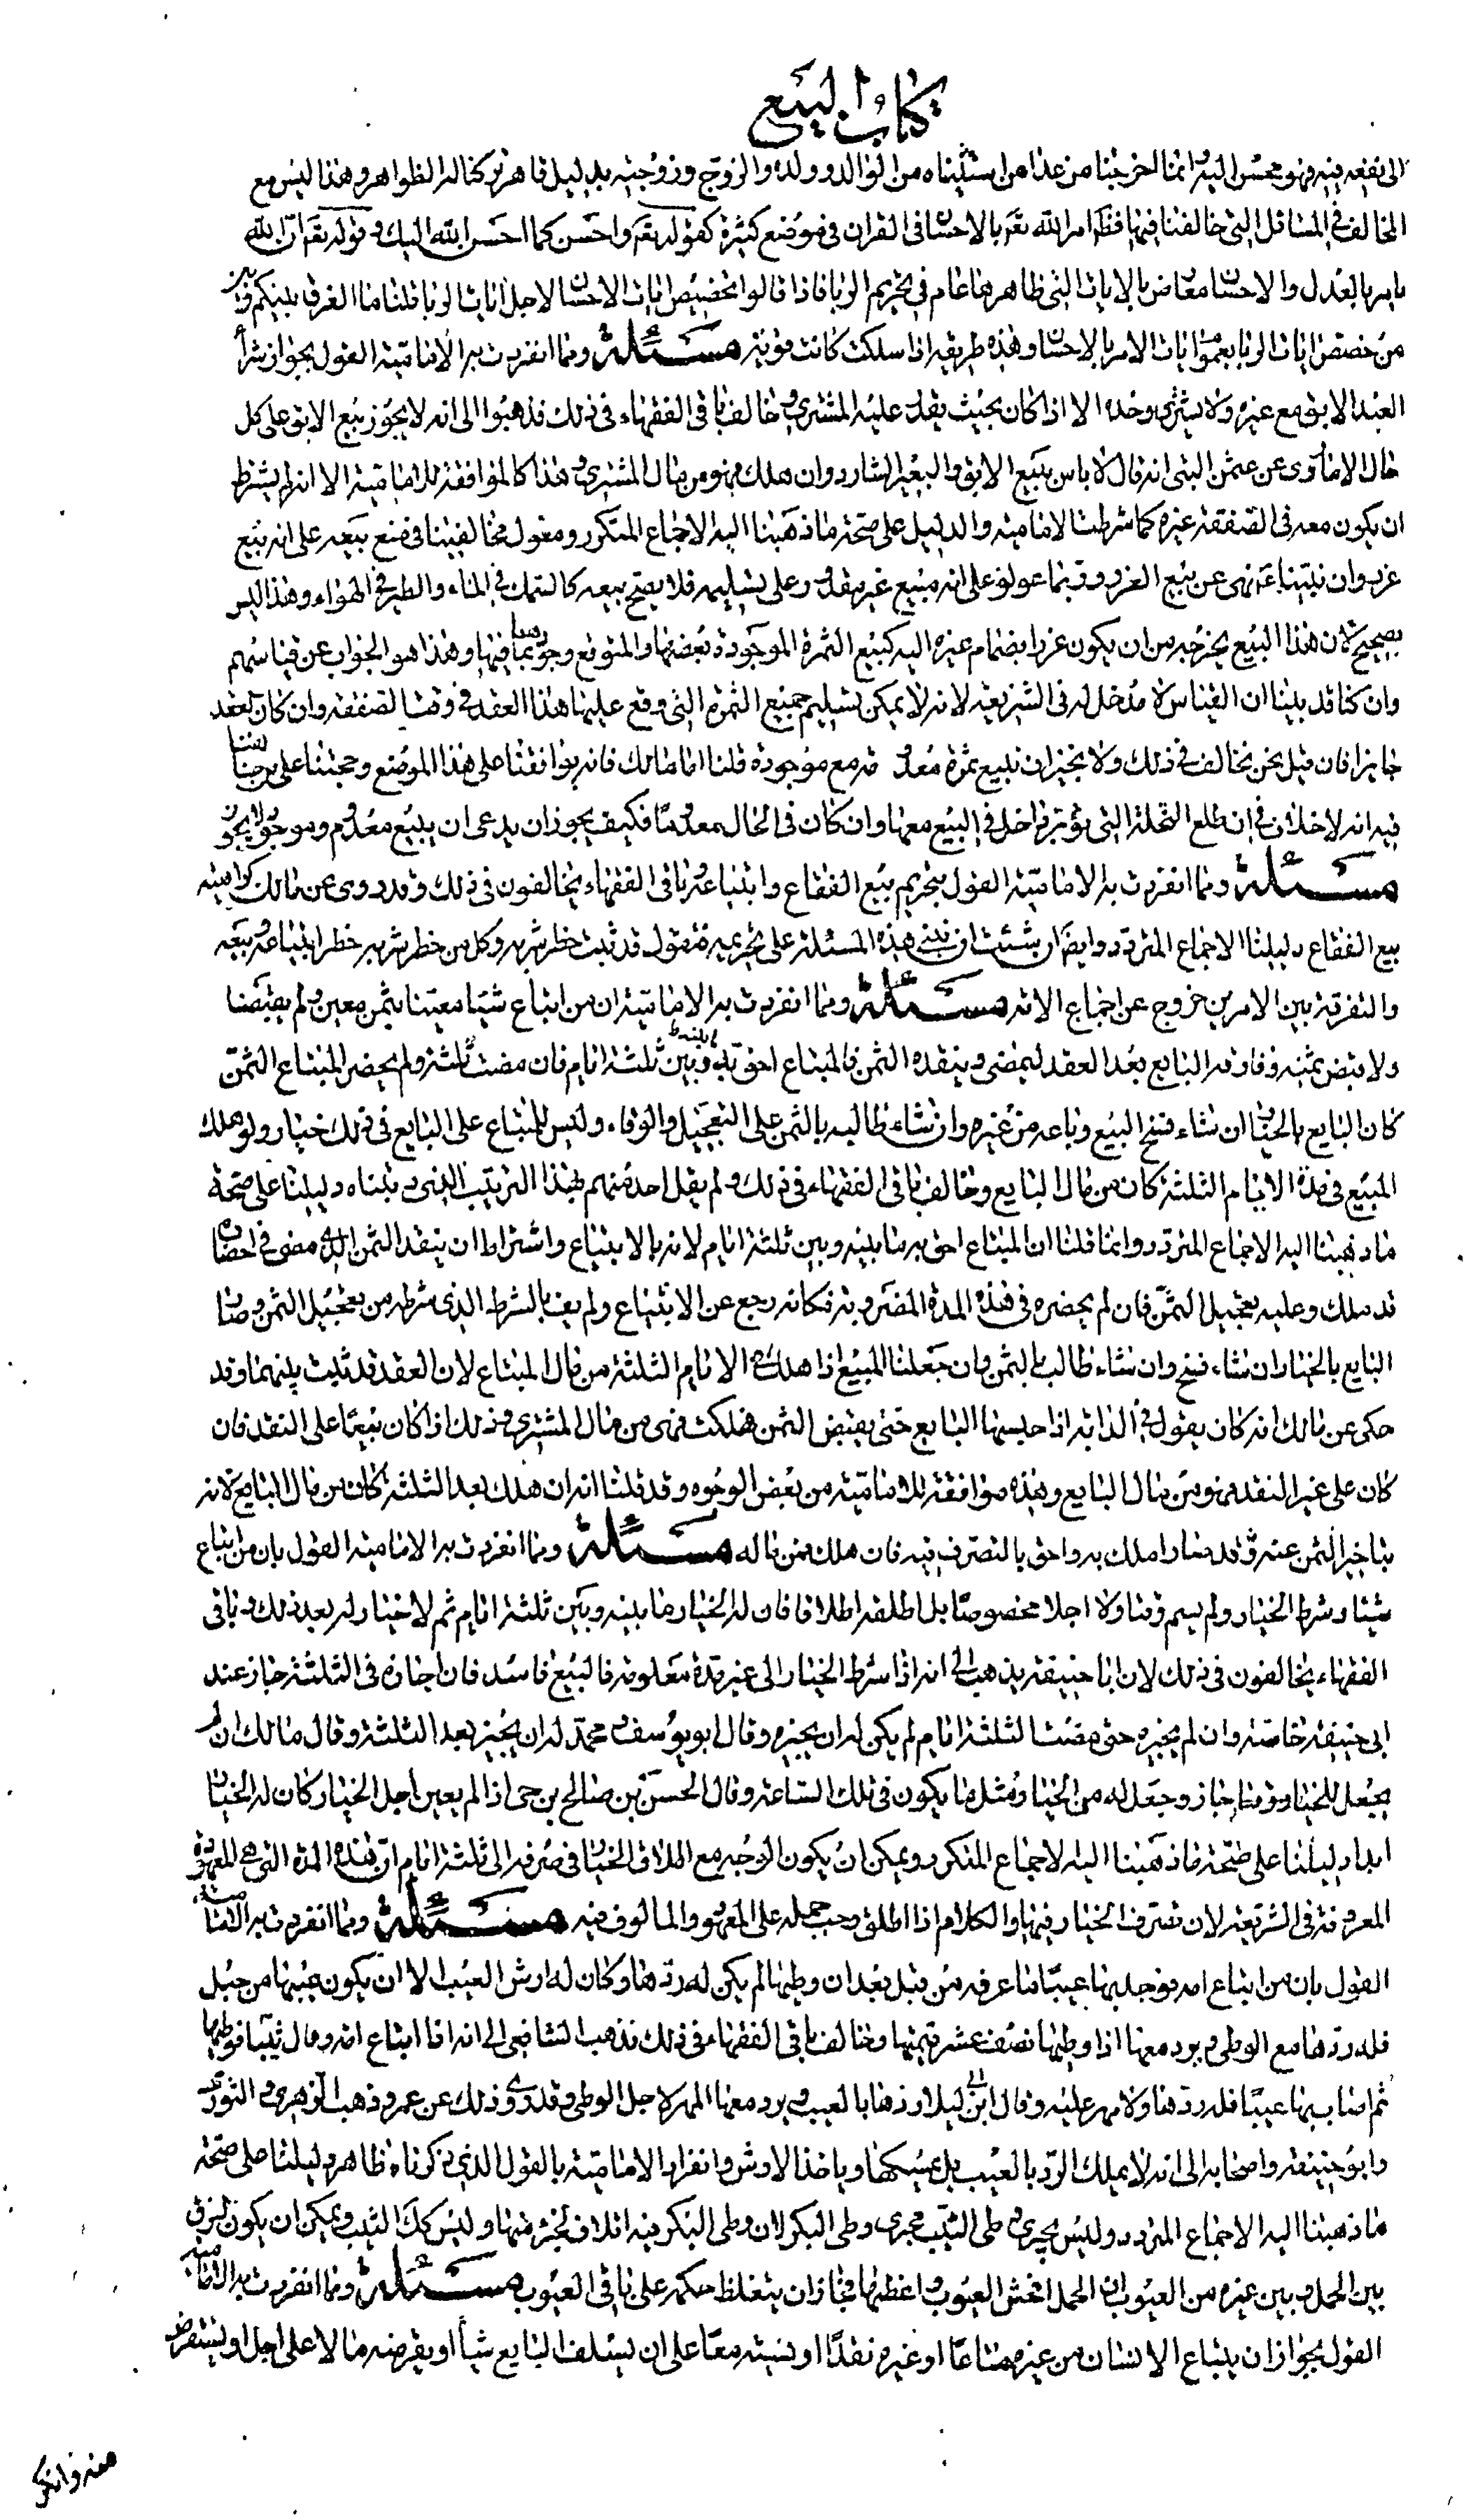 كتاب البيع
الى نفعه فيه فهو محسن اليه وانما اخرجنا من عدا من استثنيناه من الوالد وولده والزوج وزوجته بدليل قاهر تركنا له الظواهر وهذا ليس مع
المخالف في المسائل التي خالفنا فيها فظ امر الله تعم بالاحسان في القران في موضع كثيرة كقوله تعم واحسن كما احسن الله اليك وقوله تعم ان الله
يامر بالعدل والاحسان معارض بالايات التي ظاهرها عام في تحريم الربا فاذا قالوا نخصص ايات الاحسان لاجل ايات الربا قلنا ما الفرق بينكم وبين
من خصص ايات الربا بعموم ايات الامر بالاحسان وهذه طريقة اذا سلكت كانت قوية مسئلة ومما انفردت به الامامية القول بجواز شرأ
العبد الابق مع غيره ولا يشترى وحده الا اذا كان بحيث يقدر عليه المشتري وخالف باقي الفقهاء في ذلك فذهبوا الى انه لا يجوز بيع الابق على كل
حال الا ما روى عن عثمن البتى انه قال لا باس ببيع الابق والبعير الشارد وان هلك فهو من مال المشتري وهذا كالموافقة للامامية الا انه لم يشترط
ان يكون معه في الصفقة غيره كما شرطت الامامية والدليل على صحة ما ذهبنا اليه الاجماع المتكرر ومعول مخالفينا في منع بيعه على انه بيع
غرر وان نبينا ع نهى عن بيع الغرر وربما عولوا على انه مبيع غير مقدور على تسليمه فلا يصح بيعه كالسمك في الماء والطير في الهواء وهذا ليس
بصحيح لان هذا البيع يخرجه من ان يكون غررا بضمام غيره اليه كبيع الثمرة الموجودة بعضها والمتوقع وجود باقيها وهذا هو الجواب عن قياسهم
وان كنا قد بينا ان القياس لا مدخل له في الشريعة لانه لا يمكن تسليم جميع الثمرة التي وقع عليها هذا العقد في وقت الصفقة وان كان العقد
جايزا فان قيل نحن نخالف في ذلك ولا نجيز ان نبيع ثمرة معدومة مع موجودة قلنا اما مالك فانه يوافقنا على هذا الموضع وحجتنا على من خالفنا
فيه انه لا خلاف في ان طلع النخلة التي لم يؤبر داخل في البيع معها وان كان في الحال معدوما فكيف يجوز ان يدعى ان بيع معدوم وموجود لا يجوز
مسئلة ومما انفردت به الامامية القول بتحريم بيع الفقاع وابتياعه وباقي الفقهاء يخالفون في ذلك وقد روى عن مالك كراهية
بيع الفقاع دليلنا الاجماع المتردد وايضا ان شئت ان نبني هذه المسئلة على تحريمه فنقول قد ثبت حظر شربه وكل من حظر شربه حظر ابتياعه وبيعه
والتفرقة بين الامرين خروج عن اجماع الامة مسئلة ومما انفردت به الامامية ان من ابتاع شيئا معينا بثمن معين ولم يقبضها
ولا قبض ثمنه وفارقه البايع بعد العقد ليمضى وينقده الثمن فالمبتاع احق به ما بينه وبين ثلثة ايام فان مضت ثلثة ولم يحضر المبتاع الثمن
كان البايع بالخيار ان شاء فسخ البيع وباعه من غيره وان شاء طالبه بالثمن على التعجيل والوفاء وليس للمبتاع على البايع في ذلك خيار ولو هلك
المبيع في مدة الايام الثلثة كان من مال البايع وخالف باقي الفقهاء في ذلك ولم يقل احد منهم بهذا الترتيب الذي رتبناه دليلنا على صحة
ما ذهبنا اليه الاجماع المتردد وانما قلنا ان المبتاع احق به ما بينه وبين ثلثة ايام لانه بالابتياع واشتراط ان ينقد الثمن الذي مضى في احضاره
قد ملك وعليه تعجيل الثمن فان لم يحضره في هذه المدة المضروبة فكانه رجع عن الابتياع ولم يف بالشرط الذي شرطه من تعجيل الثمن وصار
البايع بالخيار ان شاء فسخ وان شاء طالب بالثمن وان جعلنا المبيع اذا هلك في الايام الثلثة من مال المبتاع لان العقد قد ثبت بينهما وقد
حكى عن مالك انه كان يقول في الدابة اذا حبسها البايع حتى يقبض الثمن فهلكت فهى من مال المشتري وذلك اذا كان بيعا على النقد فان
كان على غير النقد فهو من مال البايع وهذه موافقة للامامية من بعض الوجوه وقد قلنا انه ان هلك بعد الثلثة كان من مال البايع لانه
بتاخير الثمن عنه قد صار املك به واحق بالتصرف فيه فان هلك فمن ماله مسئلة ومما انفردت به الامامية القول بان من ابتاع
شيئا وشرط الخيار ولم يسم وقتا ولا اجلا مخصوصا بل اطلقه اطلاقا فان له الخيار ما بينه وبين ثلثة ايام ثم لا خيار له بعد ذلك وباقي
الفقهاء يخالفون في ذلك لان ابا حنيفة يذهب الى انه اذا شرط الخيار الى غير مدة معلومة فالبيع فاسد فان اجازه في الثلثة جاز عند
ابى حنيفة خاصة وان لم يجزه حتى مضت الثلثة ايام لم يكن له ان يجيزه وقال ابو يوسف ومحمد له ان يجيز بعد الثلثة وقال مالك ان لم
يجعل للخيار وقتا جاز وجعل له من الخيار مثل ما يكون في تلك الساعة وقال الحسن بن صالح بن حى اذا لم يعين اجل الخيار كان له الخيار
ابدا دليلنا على صحة ما ذهبنا اليه الاجماع المتكرر ويمكن ان يكون الوجه مع اطلاق الخيار في صرفه الى ثلثة ايام ان هذه المدة التي هي المعهودة
المعروفة في الشريعة لان تصرف الخيار فيها والكلام اذا اطلق وجب حمله على المعهود والمالوف فيه مسئلة ومما انفردت به الامامية
القول بان من ابتاع امة فوجد بها عيبا ما عرفه من قبل بعد ان وطيها لم يكن له ردها وكان له ارش العيب الا ان يكون عيبها من حبل
فله ردها مع الوطى ويرد معها اذا وطيها نصف عشر قيمتها وخالف باقي الفقهاء في ذلك فذهب الشافعى الى انه اذا ابتاع امة وقال ثيبا فوطيها
ثم اصاب بها عيبا فله ردها ولا مهر عليه وقال ابن ابي ليلا ردها بالعيب ويرد معها المهر لاجل الوطى وقد روى ذلك عن عمر وذهب الزهري والثورى
وابو حنيفة واصحابه الى انه لا يملك الرد بالعيب بل يمسكها وياخذ الارش وانفراد الامامية بالقول الذي ذكرناه ظاهر دليلنا على صحة
ما ذهبنا اليه الاجماع المتردد وليس يجرى وطى الثيب مجرى وطى البكر لان وطى البكر فيه اتلاف لجزء منها وليس كك الثيب ويمكن ان يكون الفرق
بين الحمل وبين غيره من العيوب ان الحمل افحش العيوب واعظمها فجاز ان يتغلظ حكمه على باقي العيوب مسئلة ومما انفردت به الامامية
القول بجواز ان يبتاع الانسان من غيره متاعا او غيره نقدا او نسيئة معا على ان يسلف البايع شيأ او يقرضه مالا على اجل او يستقرض
منه وانكر